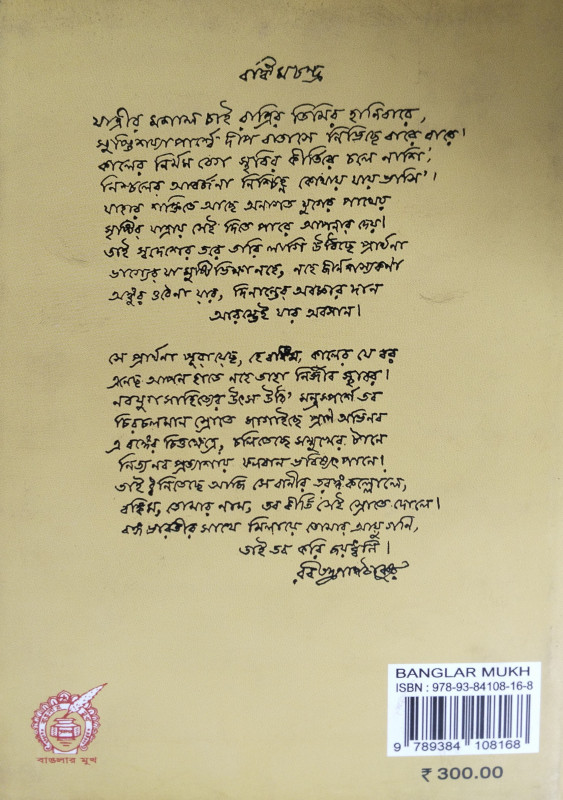 বঙ্কিমচন্দ্র
যাত্রীর মশাল চাই রাত্রির তিমির হানিবারে,
সুপ্তিশয্যাপার্শ্বে দীপ বাতাসে নিভিছে বারে বারে।
কালের নির্মম বেগ স্থবির কীর্তিরে চলে নাশি;
নিশ্চলের আবর্জনা নিশ্চিহ্ন কোথায় যায় ভাসি'।
যাহার শক্তিতে আছে অনাগত যুগের পাথেয়
সৃষ্টির যাত্রায় সেই দিতে পারে আপনার দেয়।
তাই স্বদেশের তরে তারি লাগি উঠিছে প্রার্থনা
ভাগ্যের যা মুষ্টিভিক্ষা নহে, নহে জীর্ণ শস্যকণা
অঙ্কুর ওঠেনা যার, দিনান্তের অবজ্ঞার দান
আরম্ভেই যার অবসান।
সে প্রার্থনা পুরায়েছ, হে বঙ্কিম, কালের যে বর
এনেছ আপন হাতে নহে তাহা নির্জীব স্থাবর।
নবযুগসাহিত্যের উৎস উঠি' মন্ত্রস্পর্শে তব
চিরচলমান স্রোতে জাগাইছে প্রাণ অভিনব
এ বঙ্গের চিত্তক্ষেত্রে, চলিতেছে সম্মুখের টানে
নিত্য নব প্রত্যাশায় ফলবান ভবিষ্যৎ পানে।
তাই ধ্বনিতেছে আজি সে বাণীর তরঙ্গ কল্লোলে,
বঙ্কিম, তোমার নাম, তব কীর্তি সেই স্রোতে দোলে।
বঙ্গভারতীর সাথে মিলায়ে তোমার আয়ু গণি,
তাই তব করি জয়ধ্বনি।
রবীন্দ্রনাথ ঠাকুর
BANGLAR MUKH
ISBN : 978-93-84108-16-8
9 789384 108168
₹ 300.00
বাঙলার মুখ